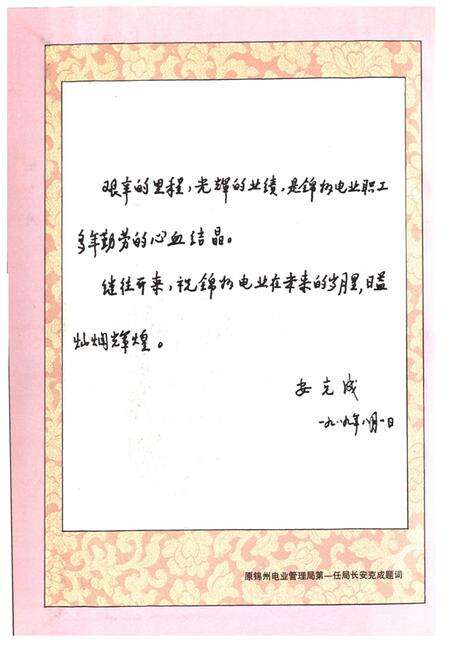 艰辛的里程，光辉的业绩，是锦州电业职工
多年勤劳的心血结晶。
继往开来，祝锦州电业在未来的岁月里，日益
灿烂辉煌。
安克成
一九八九年八月一日
原锦州电业管理局第一任局长安克成题词